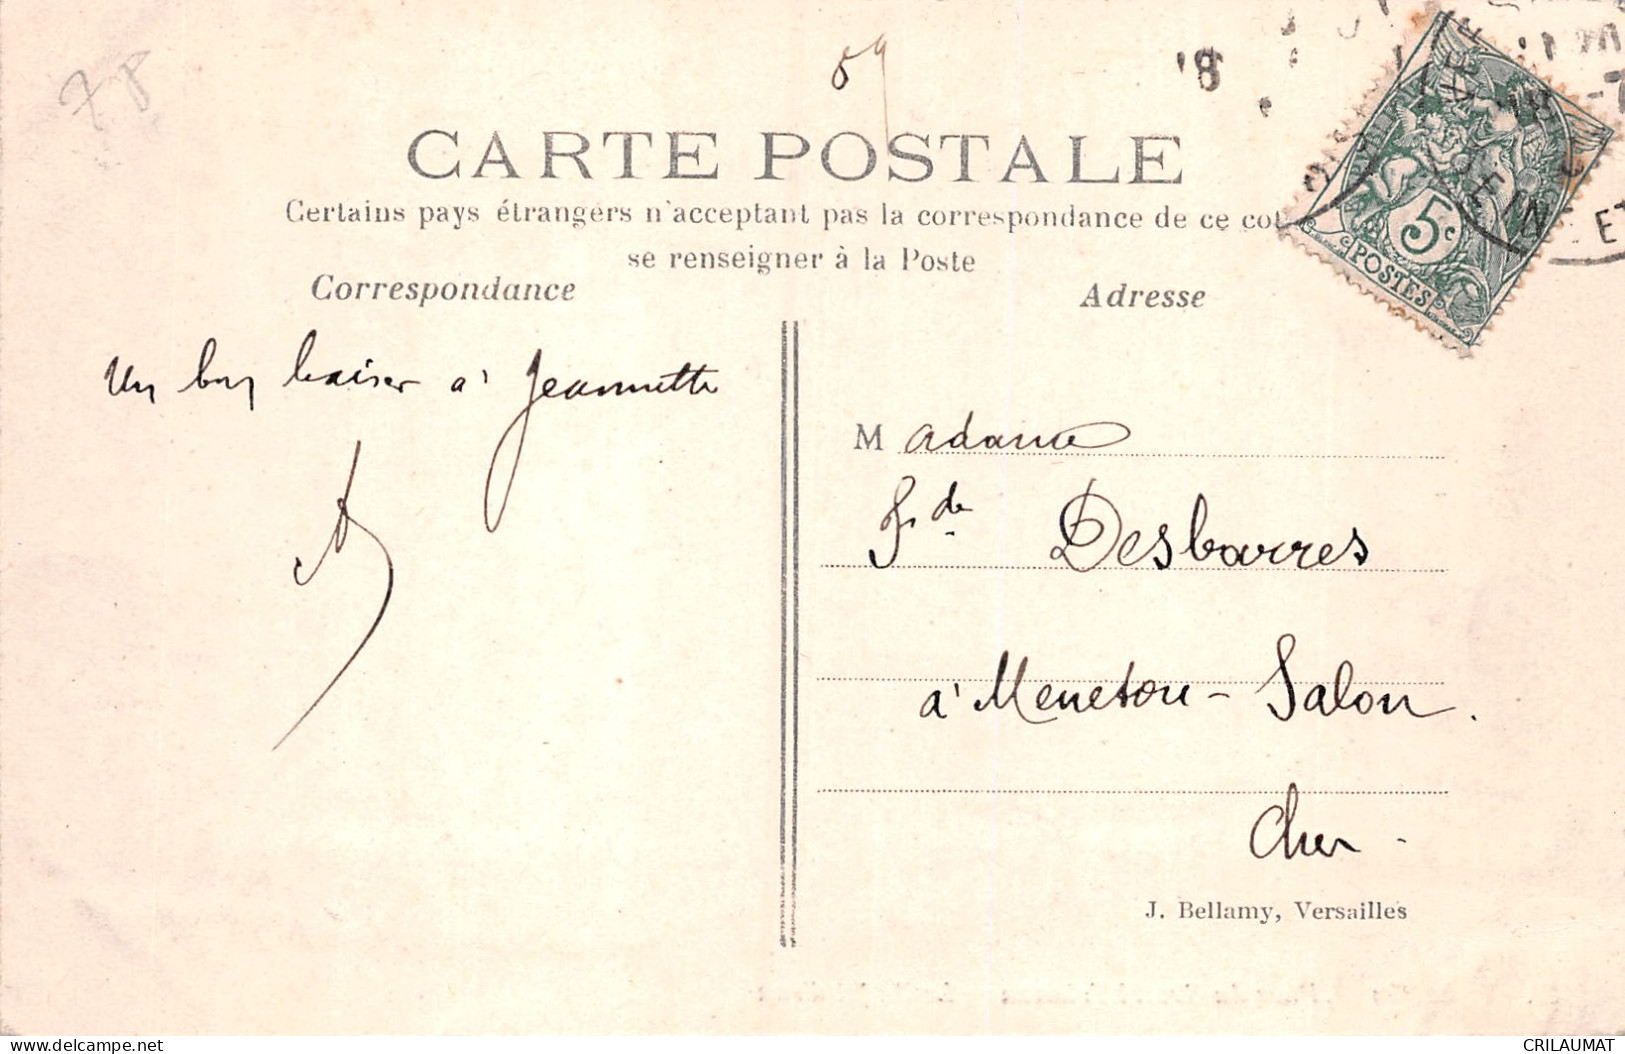 78
59
CARTE POSTALE
Certains pays étrangers n'acceptant pas la correspondance de ce cot
se renseigner à la Poste
Correspondance
Adresse
5c
POSTES
ET
Un bon baiser à Jeannette
Madame
Desbarres
à Menetou-Salon.
Cher -
J. Bellamy, Versailles
delcampe.net
CRILAUMAT